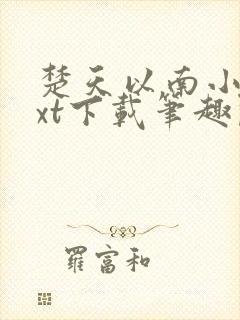 楚天以南小
xt下载笔趣
羅富和